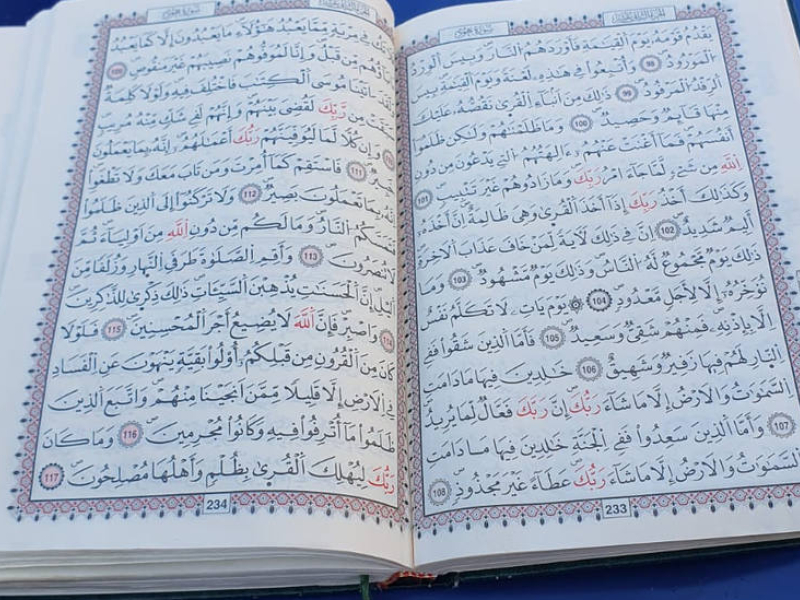 سورة هود
يقدم قومه يوم القيمة فأوردهم النار وبيس الورد
المورود 98 وأتبعوا في هذه لعنة ويوم القيمة بيس
الرفد المرفود 99 ذلك من أنباء القرى نقصه عليك
منها قايم وحصيد 100 وما ظلمنهم ولكن ظلموا
أنفسهم فما أغنت عنهم ءالهتهم التي يدعون من دون
الله من شيء لما جاء امر ربك وما زادوهم غير تتبيب 101
وكذلك أخذ ربك إذا أخذ القرى وهي ظالمة ان أخذه
أليم شديد 102 إن في ذلك لأية لمن خاف عذاب الاخرة
ذلك يوم مجموع له الناس وذلك يوم مشهود 103 وما
نؤخره إلا لأجل معدود 104 يوم يات لا تكلم نفس
الا بإذنه فمنهم شقي وسعيد 105 فأما الذين شقوا ففي
النار لهم فيها زفير وشهيق 106 خلدين فيها ما دامت
السموت والارض إلا ما شاء ربك إن ربك فعال لما يريد
107 وأما الذين سعدوا ففي الجنة خلدين فيها ما دامت
السموت والارض إلا ما شاء ربك عطاء غير مجذوذ 108
233
سورة هود
تك في مرية مما يعبد هؤلاء ما يعبدون إلا كما يعبد
ءاباؤهم من قبل وإنا لموفوهم نصيبهم غير منقوص 109
ولقد اتينا موسى الكتب فاختلف فيه ولولا كلمة
سبقت من ربك لقضي بينهم وإنهم لفي شك منه مريب
110 وإن كلا لما ليوفينهم ربك أعملهم إنه بما يعملون
خبير 111 فاستقم كما أمرت ومن تاب معك ولا تطغوا
إنه بما تعملون بصير 112 ولا تركنوا إلى الذين ظلموا
فتمسكم النار وما لكم من دون الله من اولياء ثم
لا تنصرون 113 وأقم الصلوة طرفي النهار وزلفا من
اليل إن الحسنت يذهبن السيئات ذلك ذكرى للذكرين
114 واصبر فإن الله لا يضيع أجر المحسنين 115 فلولا
كان من القرون من قبلكم أولوا بقية ينهون عن الفساد
في الارض إلا قليلا ممن أنجينا منهم واتبع الذين
ظلموا ما أترفوا فيه وكانوا مجرمين 116 وما كان
ربك ليهلك القرى بظلم وأهلها مصلحون 117
234